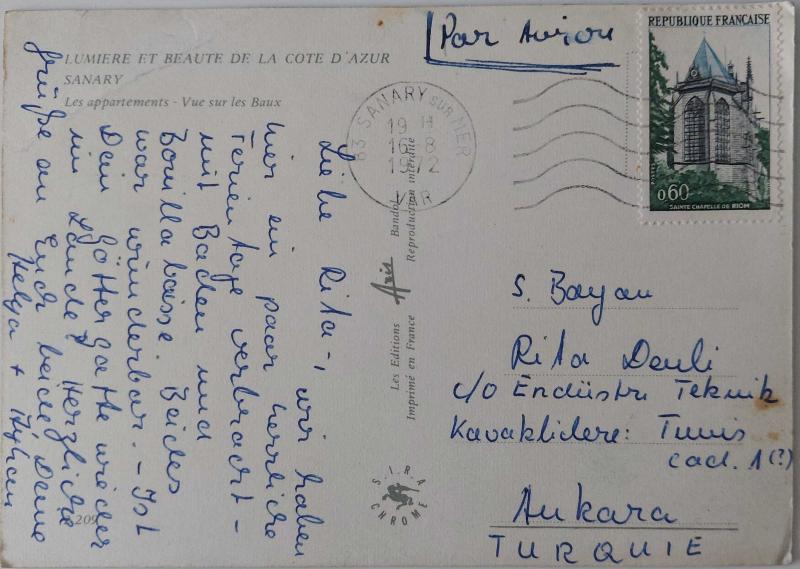 LUMIERE ET BEAUTE DE LA COTE D'AZUR
SANARY
Les appartements - Vue sur les Baux
Par Avion
REPUBLIQUE FRANÇAISE
POSTES
0,60
SAINTE CHAPELLE DE RIOM
83 SANARY SUR MER
19 H
16-8
1972
VAR
Liebe Rita -, wir haben
hier ein paar herrliche
Ferientage verbracht -
mit Baden und
Bouillabaisse. Beides
war wunderbar. - Ist
Dein Göttergatte wieder
im Lande? Herzliche
Grüße an Euch beide, Deine
Helga + Ayhan
Les Editions Aris Bandol
Imprimé en France Reproduction interdite
S.I.R.A.
CHROME
209
S. Bayan
Rita Denli
c/o Endüstri Teknik
Kavaklidere: Tunus
cad. 1 (?)
Ankara
TURQUIE